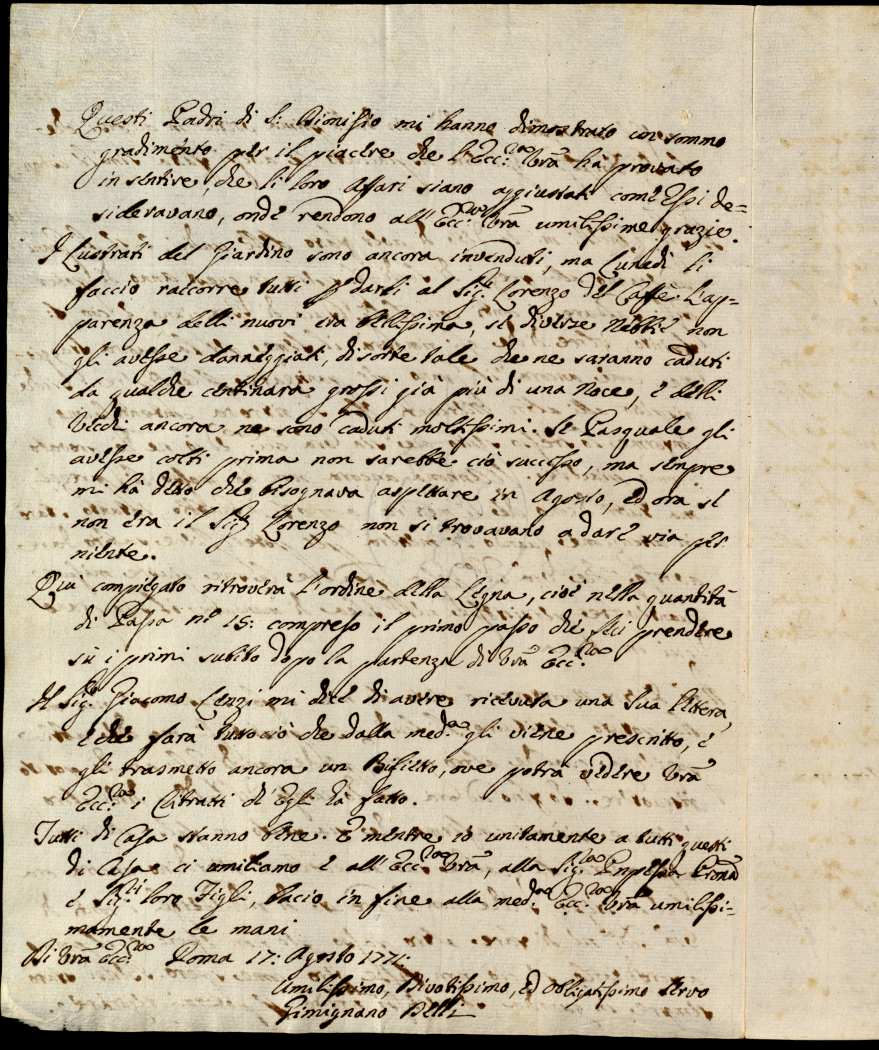 Questi Padri di S: Dionisio mi hanno dimostrato un sommo
gradimento per il piacere che l'Ecc:za Vrã hà provato
in sentire, che li loro Affari siano aggiustati come Essi de=
sideravano, onde rendono all'Ecc:za Vrã umilissime grazie.
I Lustrati del Giardino sono ancora invenduti, ma Lunedì li
faccio raccorre tutti p darli al Sig:r Lorenzo del Caffè. L'ap=
parenza delli nuovi era bellissima, se diverse Nebbie non
gli avesse danneggiati, di sorte tale che ne saranno caduti
da qualche centinara grossi già più di una Noce, e delli
Vecchi ancora ne sono caduti moltissimi. Se Pasquale gli
avesse colti prima non sarebbe ciò successo, ma sempre
mi hà detto che bisognava aspettare in Agosto, ed ora se
non era il Sig:r Lorenzo non si trovavano a dare via per
niente.
Quì compiegato ritroverà l'ordine della Legna, cioè nella quantità
di Passa n° 15: compreso il primo passo che feci prendere
sù i primi subito dopo la partenza di Vrã Ecc:za
Il Sig:r Giacomo Cenzi mi dice di avere ricevuta una Sua lettera,
e che farà tutto ciò che dalla med:a gli viene prescritto, e
gli trasmetto ancora un Biglietto, ove potrà vedere Vrã
Ecc:za i Contratti ch'Egli hà fatto.
Tutti di Casa stanno bene. E mentre io unitamente a tutti questi
di Casa ci umiliamo e all'Ecc:za Vrã, alla Sig:ra Pnpessa Pronã
e Sig:ri loro Figli, bacio in fine alla med:a Ecc:za Vrã umilissi=
mamente le mani
Di Vrã Ecc:za Roma 17: Agosto 1771:
Umilissimo, Divotissimo, ed obligatissimo servo
Gimignano Belli